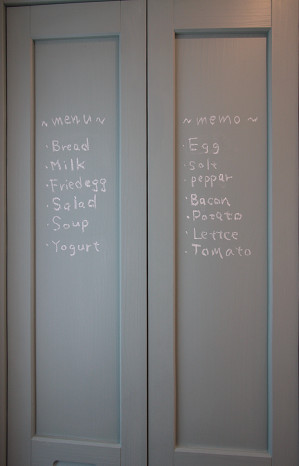 ~menu~
·Bread
·Milk
·Friedegg
·Salad
·Soup
·Yogurt
~memo~
·Egg
·Solt
·peppar
·Bacon
·Potato
·Lettce
·Tomato